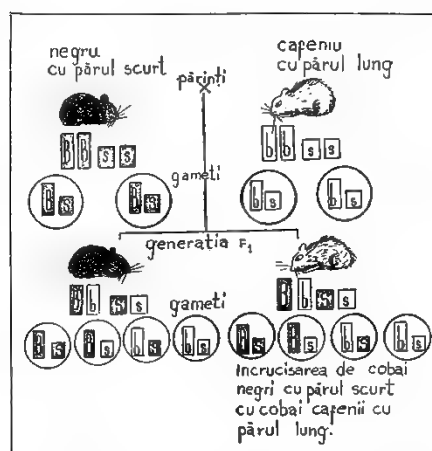 negru
cu părul scurt
cafeniu
cu părul lung
părinți
B B s s
b b s s
gameti
B s
B s
b s
b s
generatia F₁
B b s s
B b s s
gameti
B s
B s
b s
b s
B s
B s
b s
b s
Incrucisarea de cobai
negri cu părul scurt
cu cobai cafenii cu
părul lung.